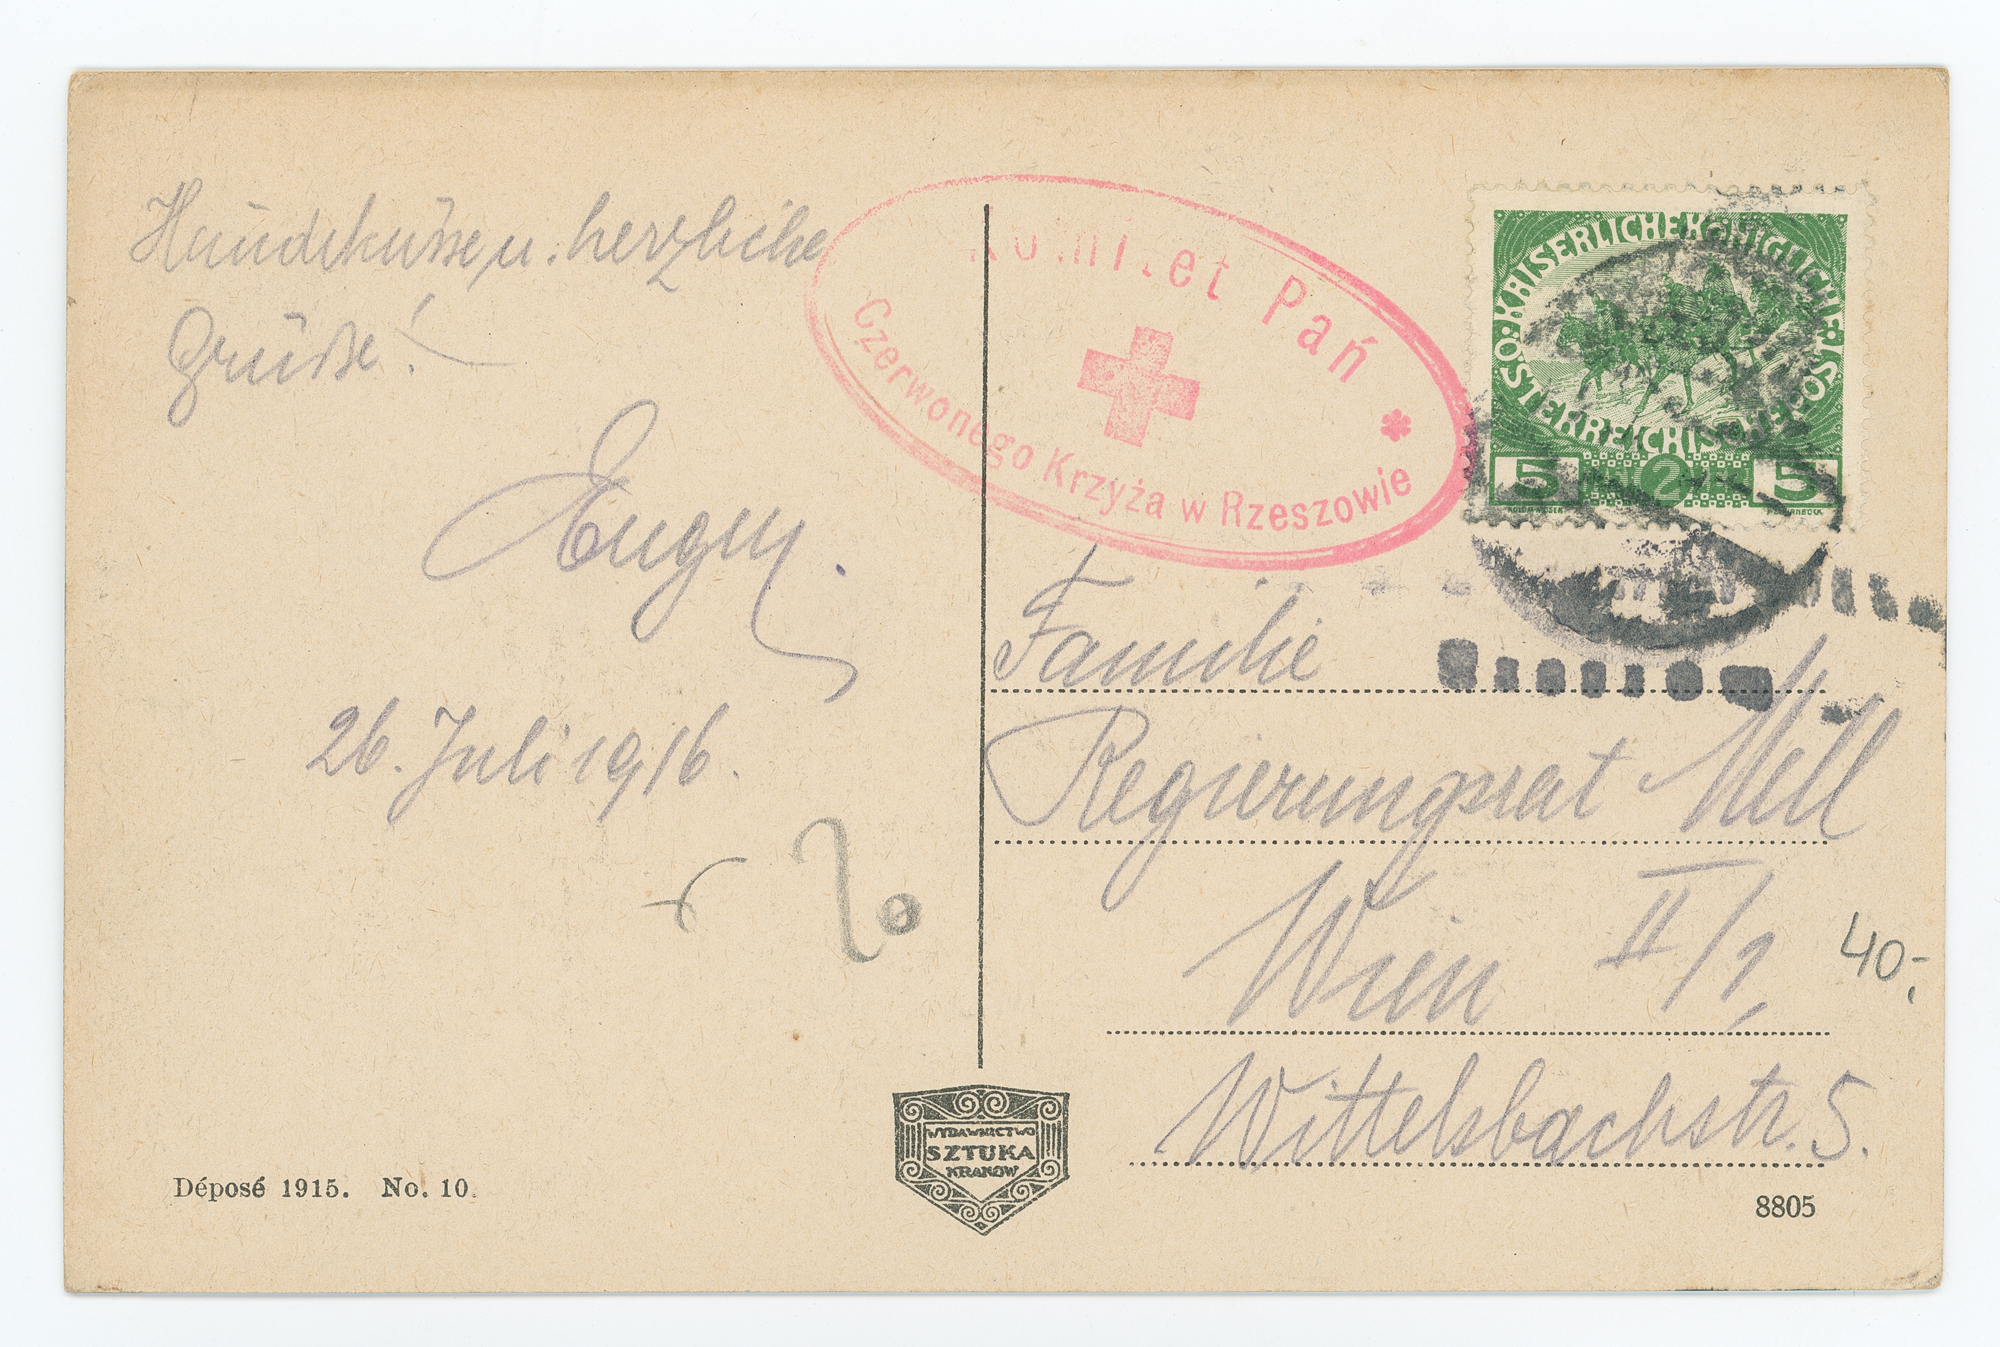 Handküsse, u. herzliche
Grüße!
Eugen.
26. Juli 1916.
Komitet Pań
Czerwonego Krzyża w Rzeszowie
KAISERLICHE KÖNIGLICHE
ÖSTERREICHISCHE POST
5 2 5
Familie
Regierungsrat Mell
Wien II/1,
Wittelsbachstr. 5.
40,-
WYDAWNICTWO
SZTUKA
KRAKÓW
Déposé 1915. No. 10.
8805